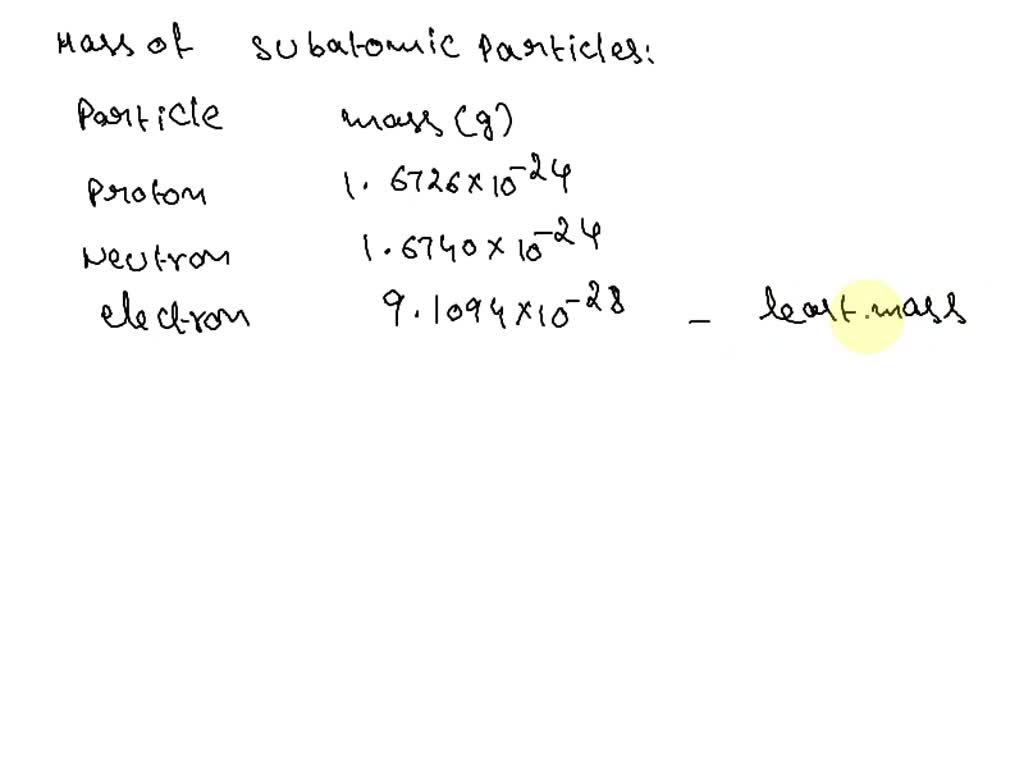 Mass of subatomic particles:
Particle mass (g)
Proton 1.6726×10⁻²⁴
Neutron 1.6740×10⁻²⁴
electron 9.1094×10⁻²⁸ – least mass